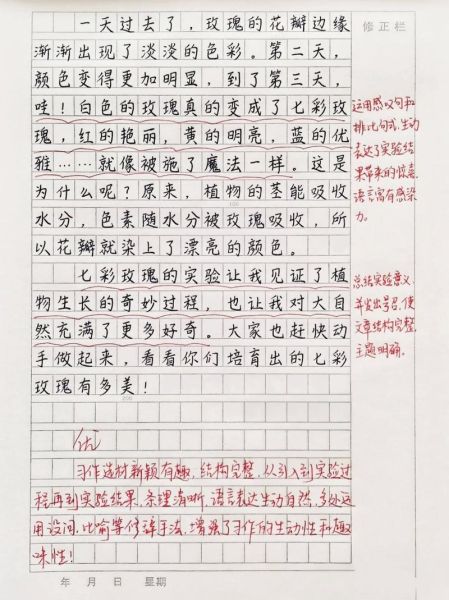 修正栏
一天过去了，玫瑰的花瓣边缘
渐渐出现了淡淡的色彩。第二天，
颜色变得更加明显，到了第三天，
哇！白色的玫瑰真的变成了七彩玫
瑰，红的艳丽，黄的明亮，蓝的优
雅……就像被施了魔法一样。这是
为什么呢？原来，植物的茎能吸收
水分，色素随水分被玫瑰吸收，所
以花瓣就染上了漂亮的颜色。
七彩玫瑰的实验让我见证了植
物生长的奇妙过程，也让我对大自
然充满了更多好奇。大家也赶快动
手做起来，看看你们培育出的七彩
玫瑰有多美！
运用感叹句和
排比句式，生动
表达了实验结
果带来的惊喜，
语言富有感染
力。
总结实验意义，
并发出号召，使
文章结构完整，
主题明确。
优
习作选材新颖有趣，结构完整，从引入到实验过
程再到实验结果，条理清晰，语言表达生动自然，多处运
用设问、比喻等修辞手法，增强了习作的生动性和趣
味性！
年 月 日 星期